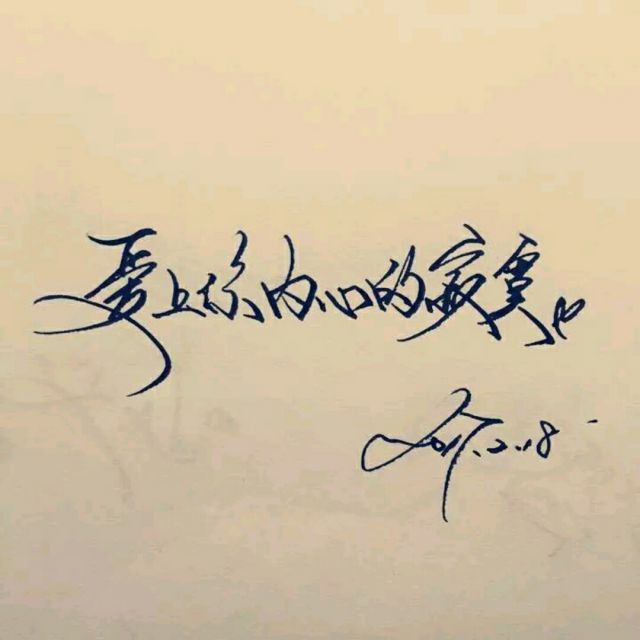 爱上你内心的寂寞
2017.2.18